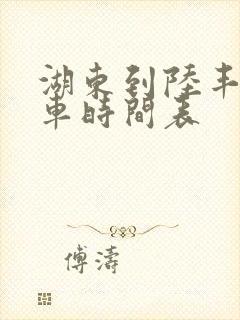 湖東到陸丰
車時間表
傅濤